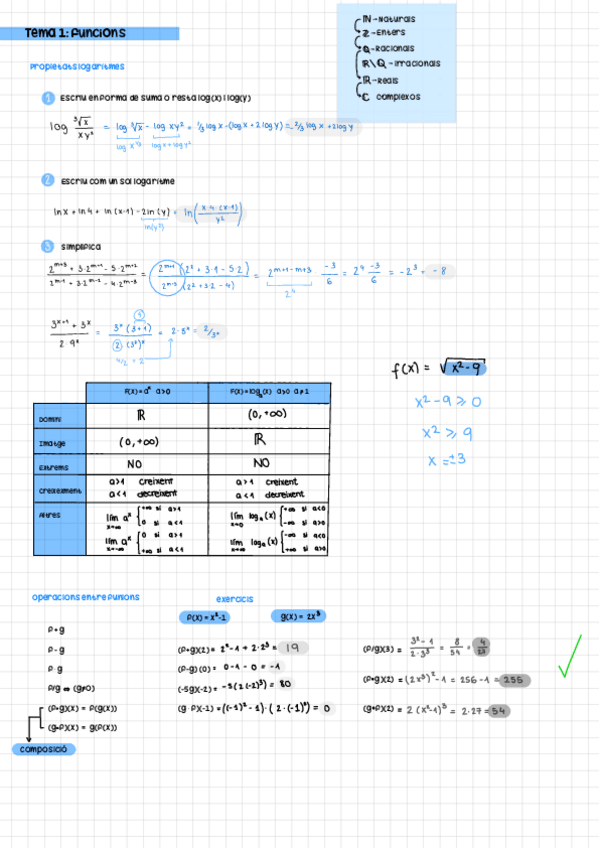 Tema 1: funcions
IN - Naturals
Z - Enters
Q - Racionals
R\Q - Irracionals
IR - Reals
C complexos
Propietats logaritmes
1 Escriu en forma de suma o resta log(x) i log(y)
log ∛x / xy² = log ∛x - log xy² = 1/3 log x - (log x + 2 log y) = -2/3 log x + 2 log y
log x^1/3 log x + log y²
2 Escriu com un sol logaritme
ln x + ln 4 + ln (x-1) - 2 ln (y) = ln( x·4·(x-1) / y² )
ln(y²)
3 Simplifica
2^m+3 + 3·2^m+1 - 5·2^m+2 / 2^m-1 + 3·2^m-2 - 4·2^m-3 = 2^m+1 (2² + 3·1 - 5·2) / 2^m-3 (2² + 3·2 - 4) = 2^m+1-m+3 · -3/6 = 2⁴ · -3/6 = -2³ = -8
2⁴
3^x+1 + 3^x / 2·9^x = 3^x (3+1) / 2 (3²)^x = 2·3^x = 2/3^x
4/2 = 2
f(x) = a^x a>0 f(x) = log_a(x) a>0 a≠1
Domini IR (0, +∞)
Imatge (0, +∞) IR
Extrems NO NO
Creixement a>1 creixent a>1 creixent
a<1 decreixent a<1 decreixent
Altres lim a^x x→+∞ { +∞ si a>1 lim log_a(x) x→0 { +∞ si a<0
0 si a<1 -∞ si a>0
lim a^x x→-∞ { 0 si a>1 lim log_a(x) { -∞ si a<0
+∞ si a<1 +∞ si a>0
f(x) = √x²-9
x² - 9 ⩾ 0
x² ⩾ 9
x = ±3
operacions entre funions
exercicis
f(x) = x²-1 g(x) = 2x³
f + g
f - g
f · g
f/g ⇔ (g≠0)
(f∘g)(x) = f(g(x))
(g∘f)(x) = g(f(x))
composició
(f+g)(2) = 2²-1 + 2·2³ = 19
(f-g)(0) = 0-1 - 0 = -1
(-5g)(-2) = -5(2(-2)³) = 80
(g·f)(-1) = ((-1)²-1)·(2·(-1)³) = 0
(f/g)(3) = 3²-1 / 2·3³ = 8/54 = 4/27
(f∘g)(2) = (2x³)²-1 = 256-1 = 255
(g∘f)(2) = 2(x²-1)³ = 2·27 = 54